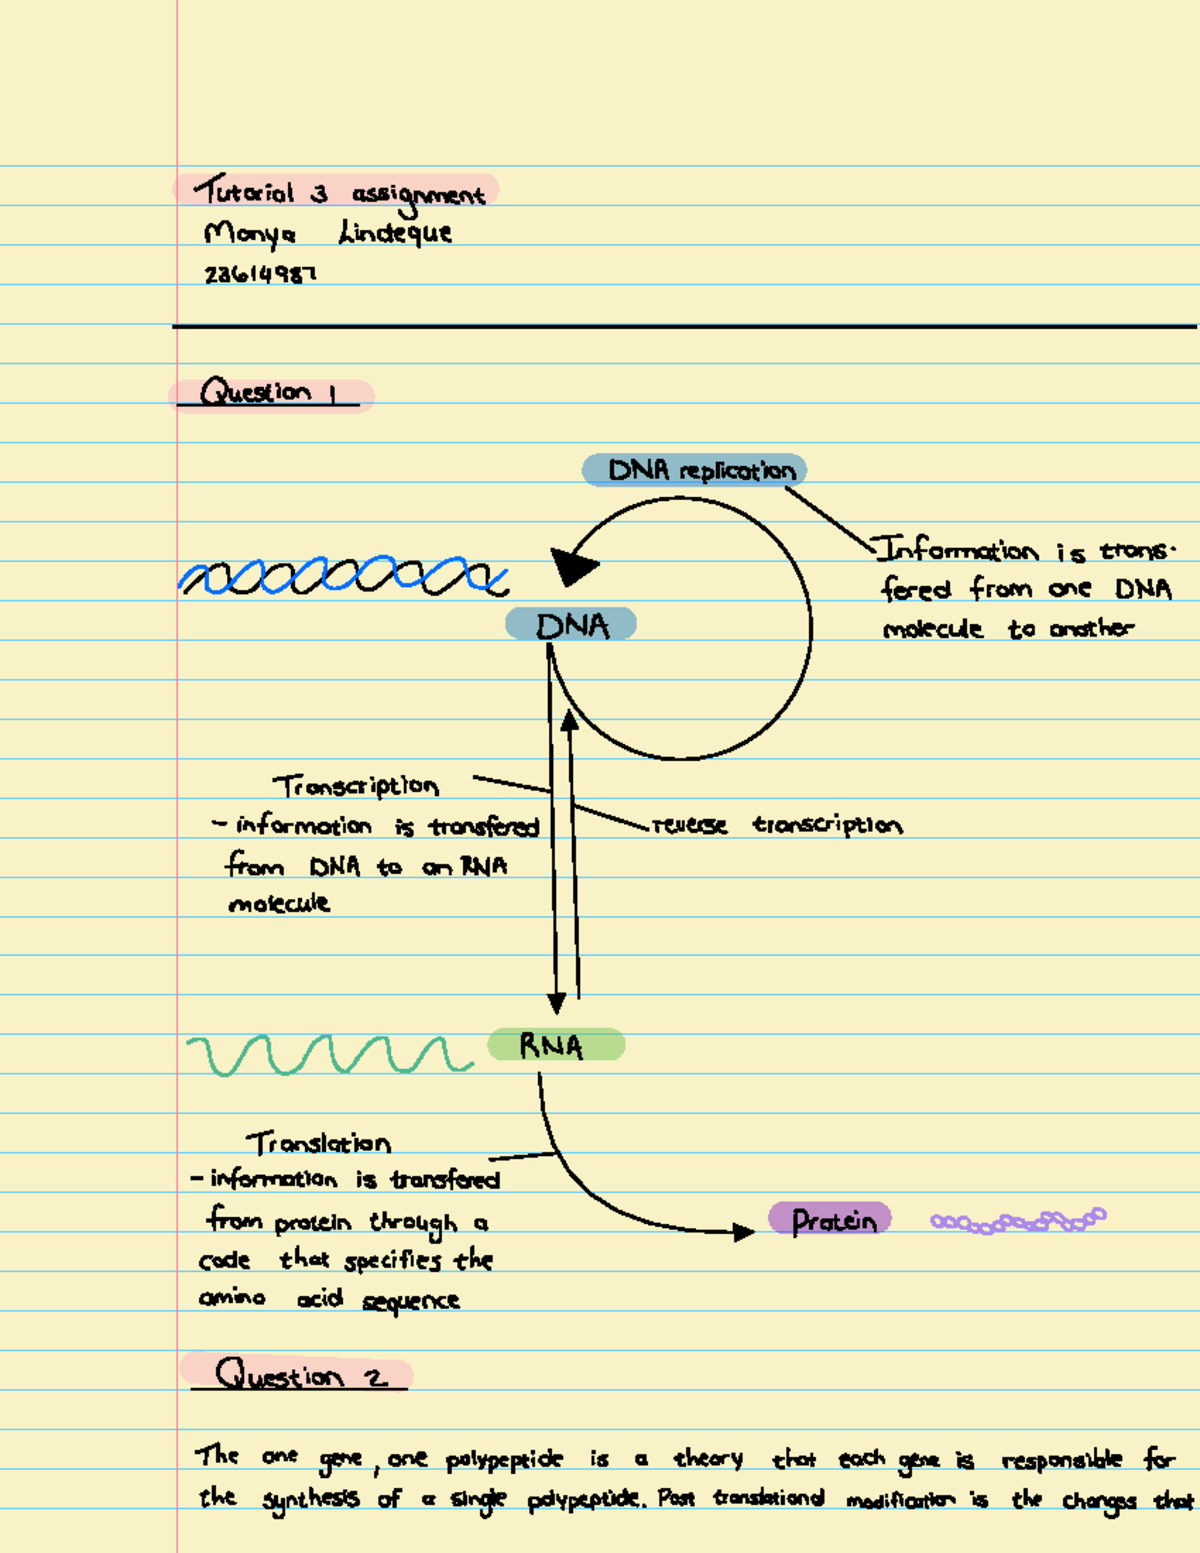 Tutorial 3 assignment
Monya Lindeque
23614987
Question 1
DNA replication
Information is trans-
fered from one DNA
molecule to another
DNA
Transcription
- information is transfered
from DNA to an RNA
molecule
reverse transcription
RNA
Translation
- information is transfered
from protein through a
code that specifies the
amino acid sequence
Protein
Question 2
The one gene, one polypeptide is a theory that each gene is responsible for
the synthesis of a single polypeptide. Post translational modification is the changes that